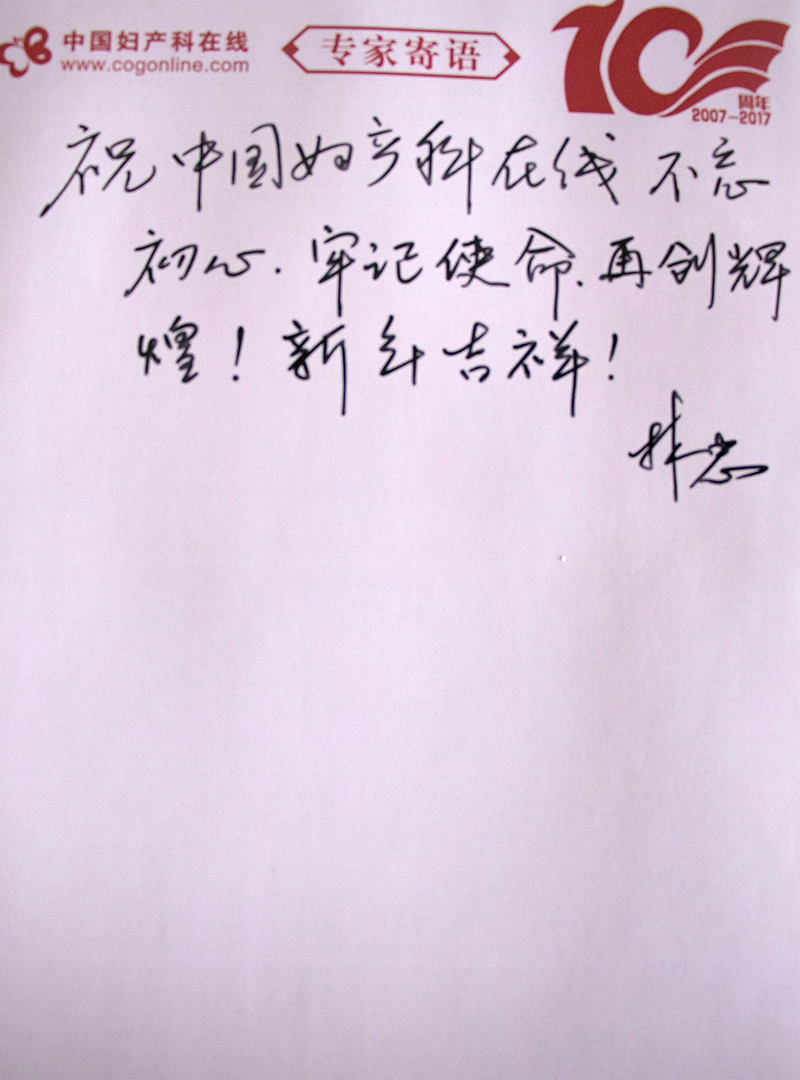 中国妇产科在线
www.cogonline.com
专家寄语
10周年
2007-2017
祝中国妇产科在线 不忘
初心.牢记使命.再创辉
煌!新年吉祥!